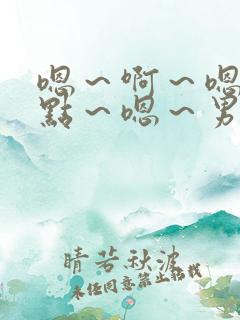 嗯〜啊〜嗯
點〜嗯〜男
晴若秋波
未经同意禁止转载